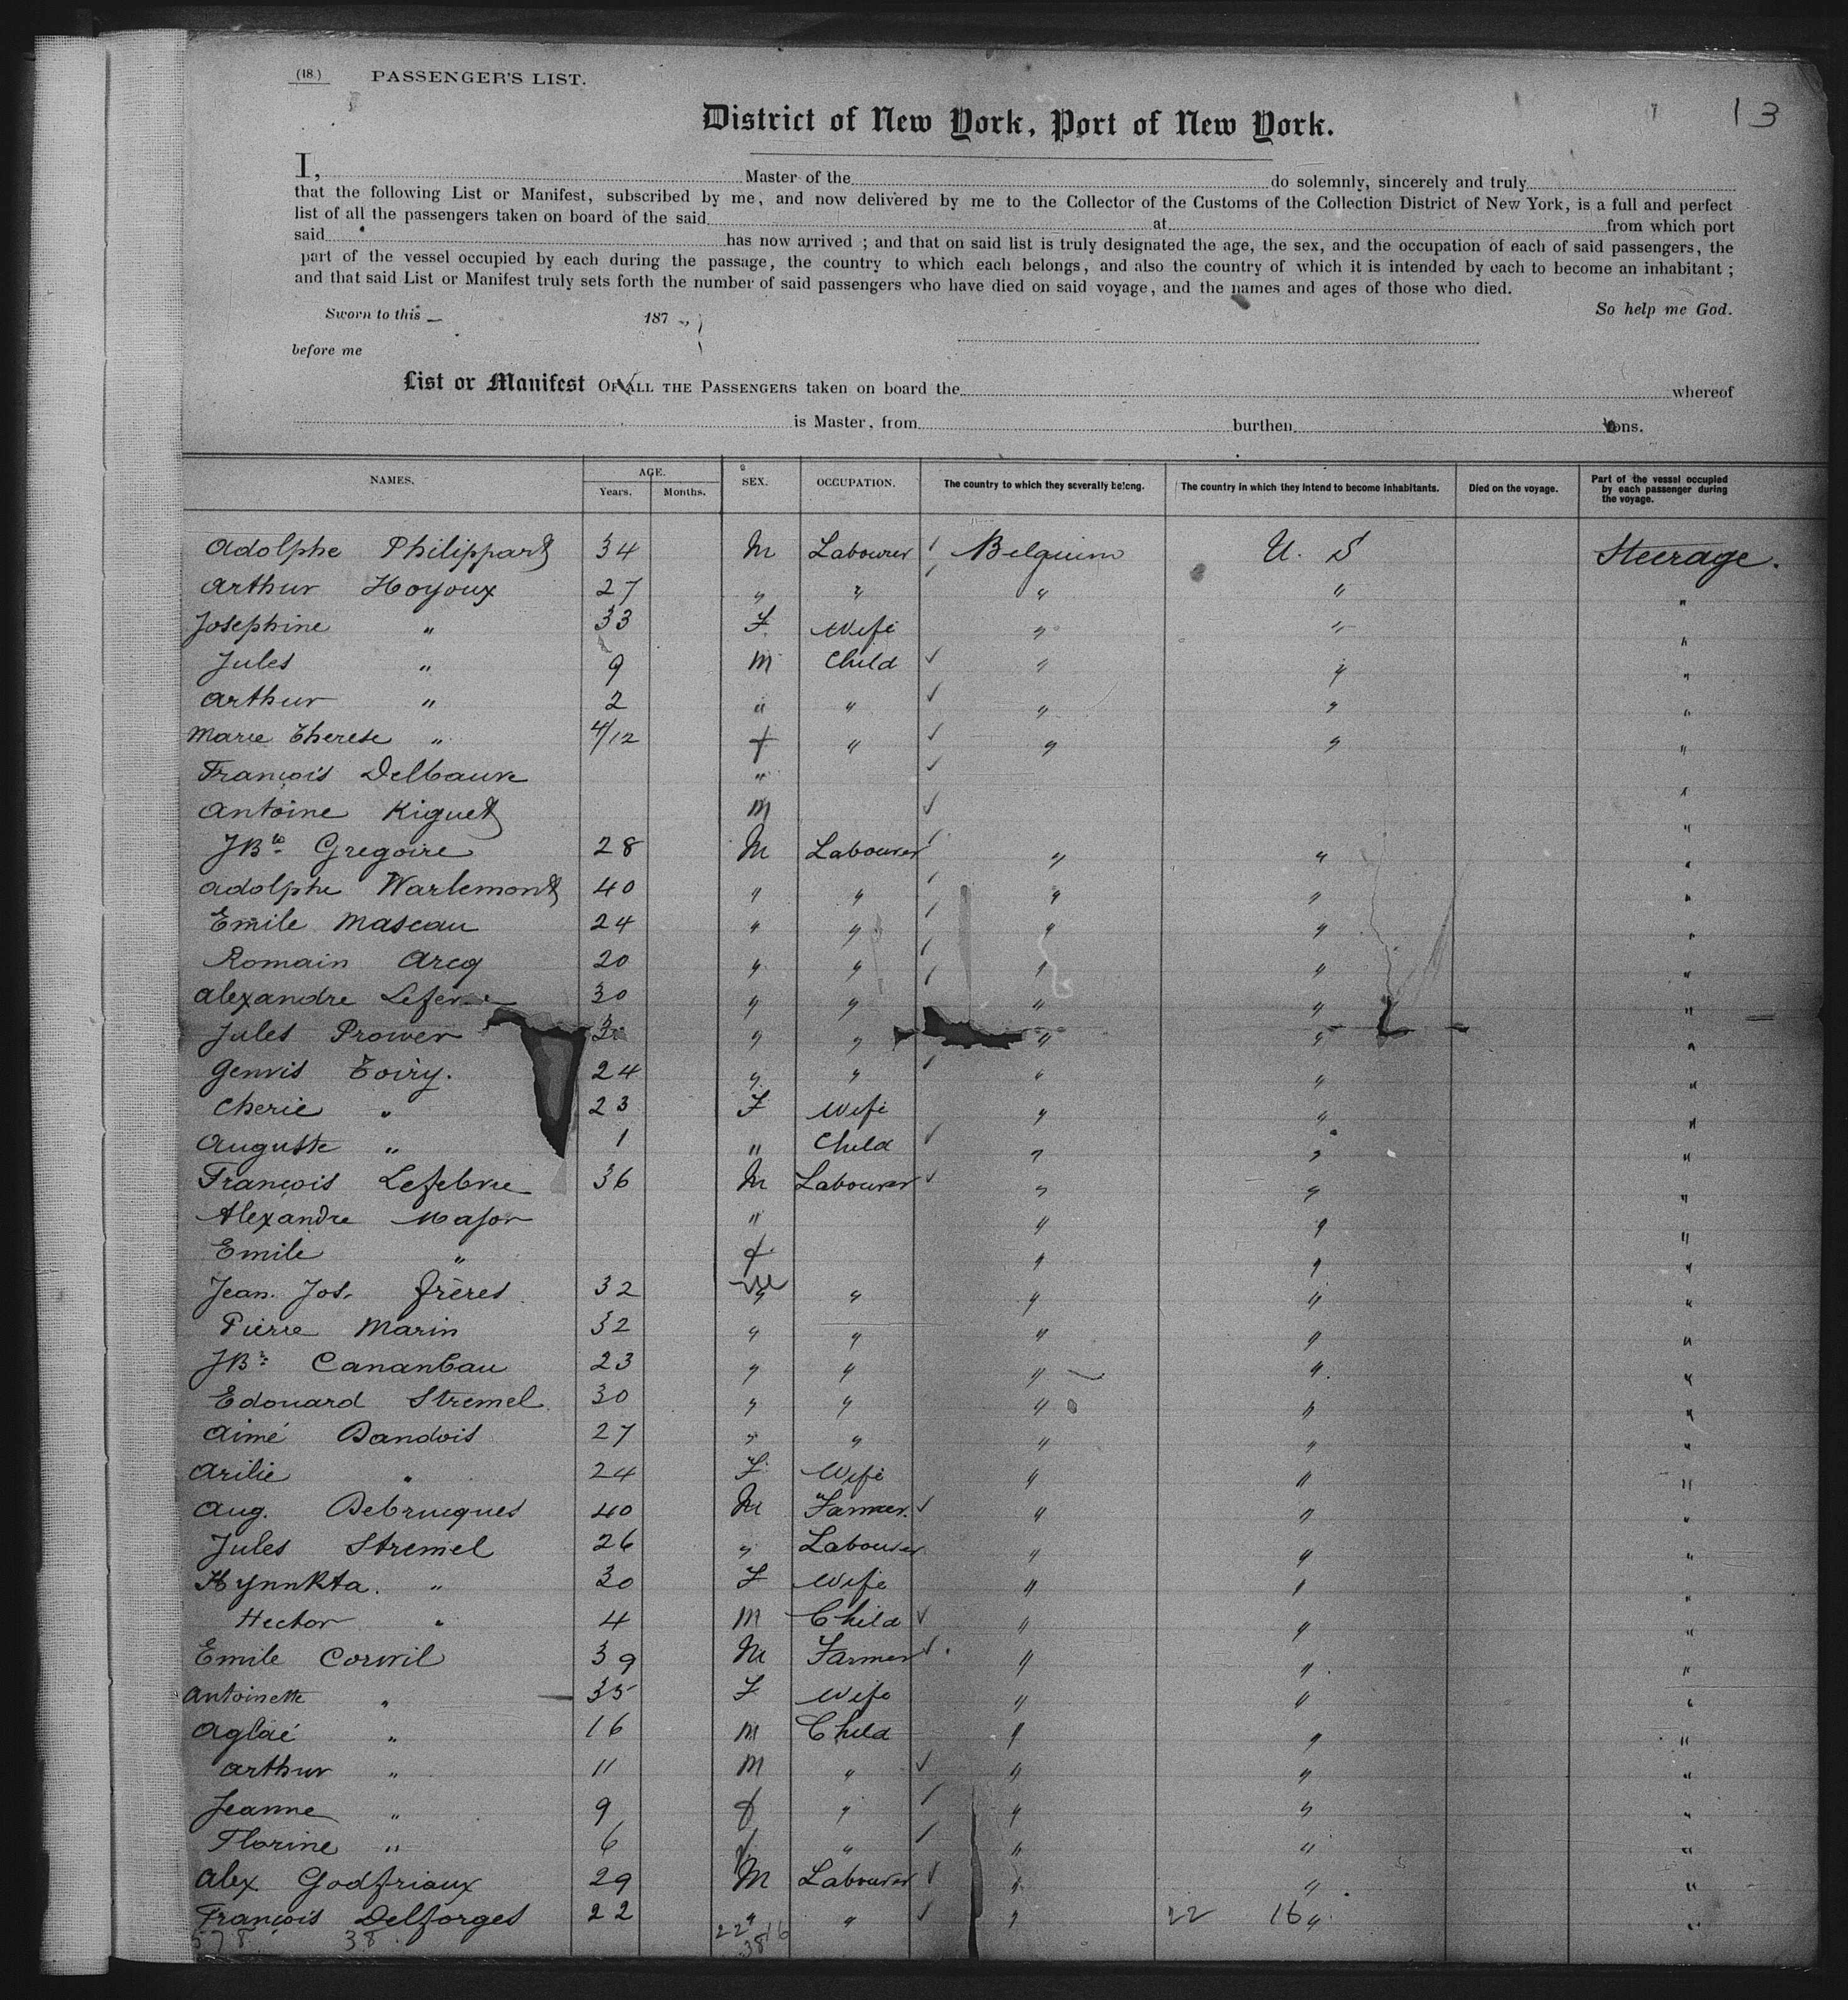 (18.) PASSENGER'S LIST.
13
District of New York, Port of New York.
I, Master of the do solemnly, sincerely and truly
that the following List or Manifest, subscribed by me, and now delivered by me to the Collector of the Customs of the Collection District of New York, is a full and perfect
list of all the passengers taken on board of the said at from which port
said has now arrived ; and that on said list is truly designated the age, the sex, and the occupation of each of said passengers, the
part of the vessel occupied by each during the passage, the country to which each belongs, and also the country of which it is intended by each to become an inhabitant ;
and that said List or Manifest truly sets forth the number of said passengers who have died on said voyage, and the names and ages of those who died.
Sworn to this 187 So help me God.
before me
List or Manifest OF ALL THE PASSENGERS taken on board the whereof
is Master, from burthen tons.
NAMES. AGE. Years. Months. SEX. OCCUPATION. The country to which they severally belong. The country in which they intend to become inhabitants. Died on the voyage. Part of the vessel occupied by each passenger during the voyage.
Adolphe Philippart 34 M Labourer Belgium U. S Steerage.
Arthur Hoyoux 27 " " " " "
Josephine " 33 F Wife " " "
Jules " 9 M Child " " "
Arthur " 2 " " " " "
Marie Therese " 4/12 f " " " "
François Delbauve " "
Antoine Kiguet M "
JBte Gregoire 28 M Labourer " " "
Adolphe Warlemont 40 " " " " "
Emile Mascau 24 " " " " "
Romain Arcq 20 " " " " "
Alexandre 30 " " " " "
Jules Prower " " " " "
Genvis Toiry. 24 " " " " "
Cherie " 23 F Wife " " "
Auguste " 1 " Child " " "
François Lefebvre 36 M Labourer " " "
Alexandre Major " " " "
Emile " f " " "
Jean. Jos. frères 32 M " " " " "
Pierre Marin 32 " " " " "
JBte Cananbau 23 " " " " "
Edouard Stremel 30 " " " " "
Aimé Dandois 27 " " " " "
Arilie " 24 F Wife " " "
Aug. Debruques 40 M Farmer. " " "
Jules Stremel 26 " Labourer " " "
" 30 F Wife " " "
Hector " 4 M Child " " "
Emile Corvil 39 M Farmer " " "
Antoinette " 35 F Wife " " "
Aglaé " 16 M Child " " "
Arthur " 11 M " " " "
Jeanne " 9 f " " " "
Florine " 6 f " " " "
Alex Godfriaux 29 M Labourer " " "
François Delforges 22 " " " 22 16 " "
578 38 22 16
38